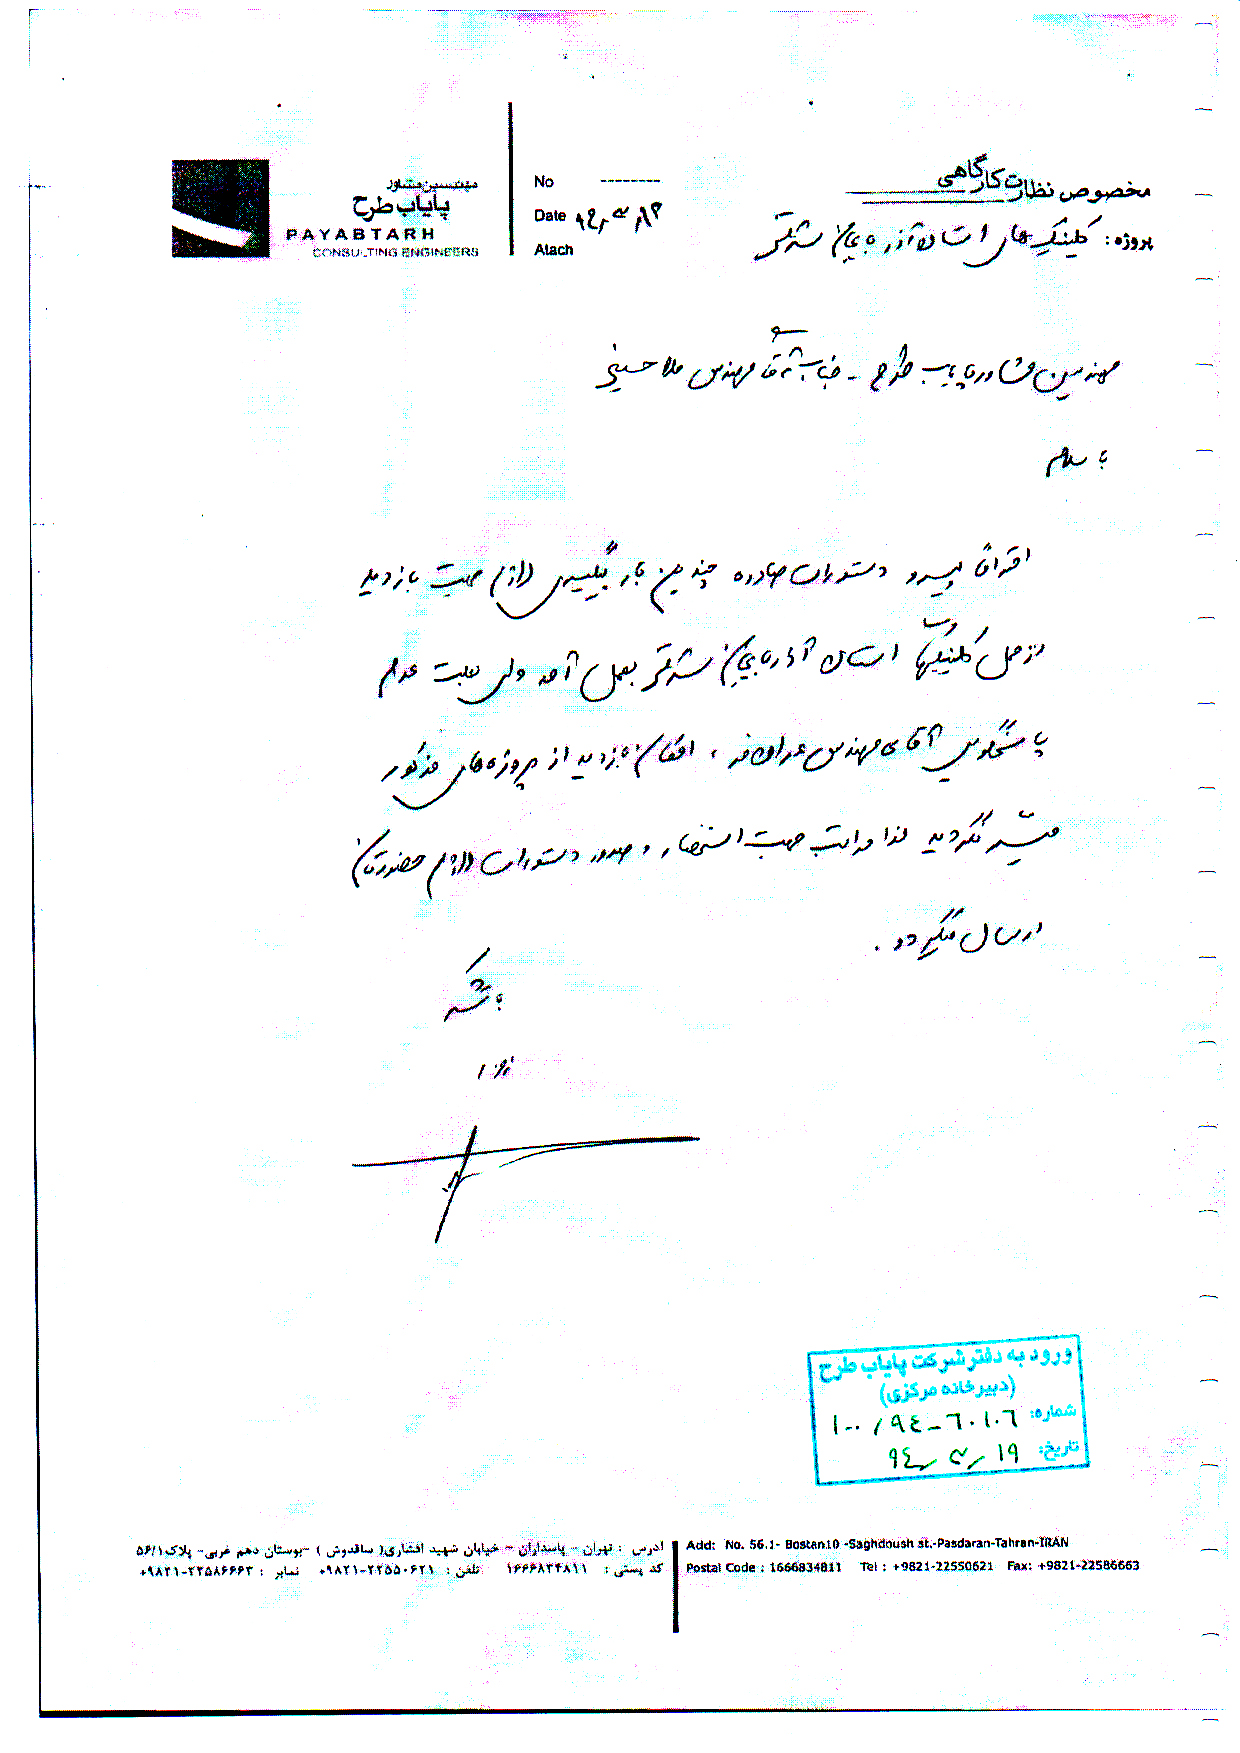 مهندسین مشاور
پایاب طرح
PAYABTARH
CONSULTING ENGINEERS
No --------
Date ۹۴,۳,۱۲
Atach
مخصوص نظارت کارگاهی
پروژه: کلینیک های استان آذربایجان شرقی
مهندسین مشاور پایاب طرح - جناب آقای مهندس ملاحسینی
با سلام
احتراماً پیرو دستورات صادره چندمین بار پیگیری لازم جهت بازدید
از محل کلینیکهای استان آذربایجان شرقی بعمل آمد ولی بعلت عدم
پاسخگویی آقای مهندس ، امکان بازدید از پروژه های مذکور
میسر نگردید لذا مراتب جهت استحضار و صدور دستورات لازم حضورتان
ارسال میگردد .
با تشکر
ورود به دفتر شرکت پایاب طرح
(دبیرخانه مرکزی)
شماره: ۱۰۰/۹۴-۶۰۱۰۶
تاریخ: ۹۴,۳,۱۹
آدرس : تهران - پاسداران - خیابان شهید افشاری( ساقدوش ) -بوستان دهم غربی- پلاک ۵۶/۱
کد پستی : ۱۶۶۶۸۳۴۸۱۱ تلفن : ۲۲۵۵۰۶۲۱-۹۸۲۱+ نمابر : ۲۲۵۸۶۶۶۳-۹۸۲۱+
Add: No. 56.1- Bostan10 -Saghdoush st.-Pasdaran-Tahran-IRAN
Postal Code : 1666834811 Tel : +9821-22550621 Fax: +9821-22586663